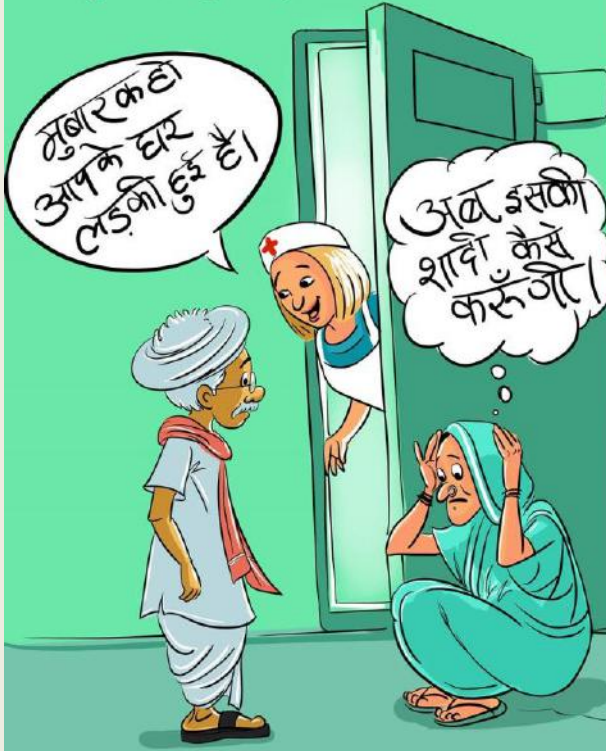 मुबारक हो
आपके घर
लड़की हुई है।
अब इसकी
शादी कैसे
करूँगी।